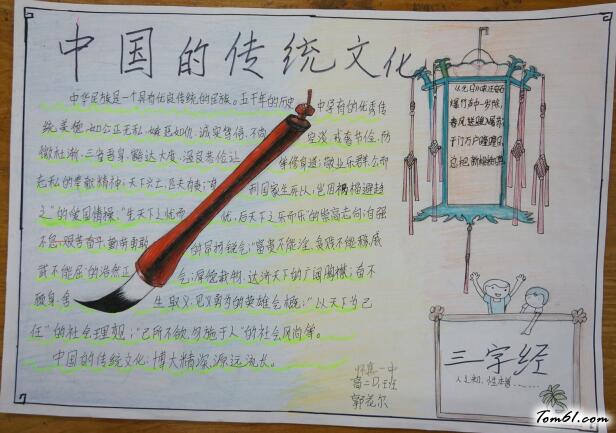 中国的传统文化
中华民族是一个具有优良传统的民族。五千年的历史 中坚有的优秀传
统美德,如公正无私 嫉恶如仇 诚实笃信、不尚 空谈、戒奢节俭、防
微杜渐,三省吾身、豁达大度、温良恭俭让 等修身之道;敬业乐群、公而
忘私的奉献精神;天下兴亡,匹夫有责; 利国家生死从,岂因祸福避趋
之"的爱国情操;"先天下之忧而 忧,后天下之乐而乐"的崇高志向;自强
不息,艰苦奋斗,勤劳勇敢 的昂扬锐气;富贵不能淫,贫贱不能移,威
武不能屈的浩然正 气;厚德载物,达济天下的广阔胸襟;奋不
顾身,舍 生取义,见义勇为的英雄气概;"以天下为己
任"的社会理想;"己所不欲,勿施于人"的社会风尚等。
中国的传统文化:博大精深,源远流长。
爆竹声中一岁除,
春风送暖入屠苏
千门万户曈曈日,
总把新桃换旧符
三字经
人之初,性本善......
怀集一中
郭花尔
Tom61.com